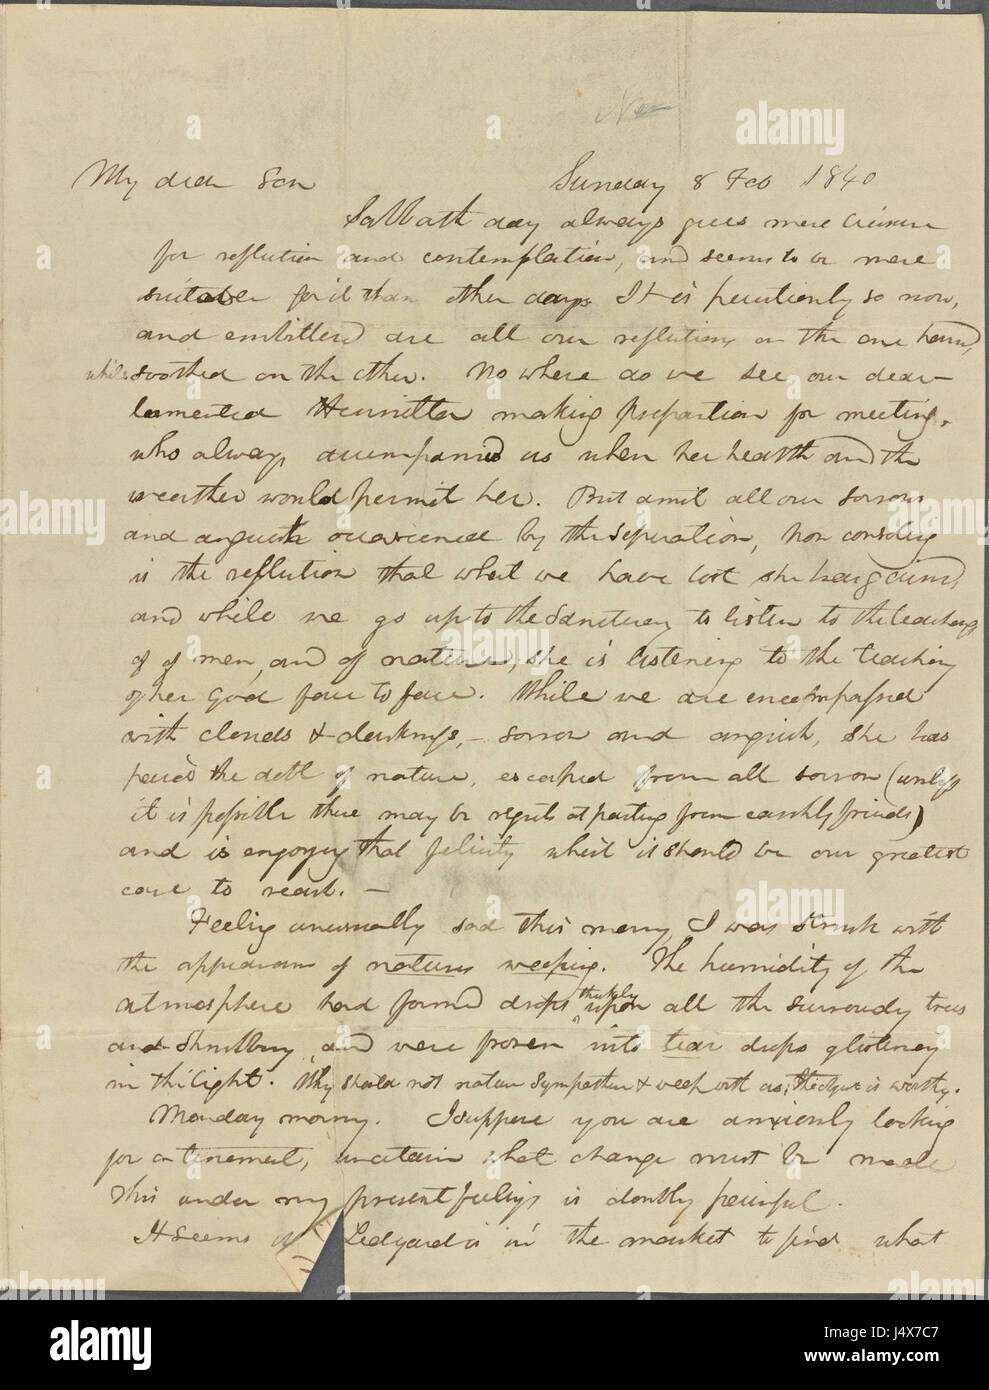 My dear Son Sunday 8 Feb 1840
Sabbath day always gives more
for reflection and contemplation, and seems to be more
suitable for it than other days. It is peculiarly so now,
and embittered are all our reflections on the one hand,
while soothed on the other. No where do we see our dear
lamented Henrietta making preparation for meeting,
who always accompanied us when her health and the
weather would permit her. But amid all our sorrows
and anguish occasioned by the separation, how consoling
is the reflection that what we have lost she has gained,
and while we go up to the Sanctuary to listen to the teachings
of men, and of nature, she is listening to the teaching
of her God face to face. While we are encompassed
with clouds & darkness, – sorrow and anguish, she has
paid the debt of nature, escaped from all sorrow (unless
it is possible there may be regrets at parting from earthly friends)
and is enjoying that felicity which it should be our greatest
care to reach. –
Feeling unusually sad this morning, I was struck with
the appearance of natures weeping. The humidity of the
atmosphere had formed drops thickly upon all the surroundg trees
and Shrubbery, and were frozen into tear drops glistening
in the light. Why should not nature sympathise & weep with us; the object is worthy.
Monday morng. I suppose you are anxiously looking
for a tenement, uncertain what change must be made
this under my present feelings is doubly painful.
It seems Ledyard is in the market to find what
alamy
alamy stock photo
J4X7C7
www.alamy.com